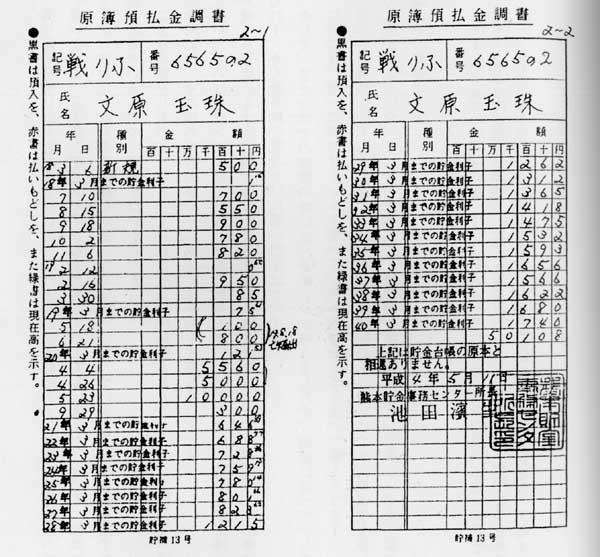 原簿預払金調書
2~1
●黒書は預入を、赤書は払いもどしを、また緑書は現在高を示す。
記号 戦りふ 番号 656502
氏名 文原玉珠
年月日 種別 金額
百十万千百十円
18 3 6 新規 500
18年3月までの貯金利子
7 10 700
8 15 550
9 18 900
10 2 780
11 6 820
19 2 12
2 16 950
3 30 85
19年3月までの貯金利子
5 18 100
6 21 800
20年3月までの貯金利子
4 4 5560
4 26 5000
5 23 10000
9 29 300
21年3月までの貯金利子
22年3月までの貯金利子
23年3月までの貯金利子
24年3月までの貯金利子
25年3月までの貯金利子
26年3月までの貯金利子
27年3月までの貯金利子
28年3月までの貯金利子 1215
貯補13号
原簿預払金調書
2~2
●黒書は預入を、赤書は払いもどしを、また緑書は現在高を示す。
記号 戦りふ 番号 656502
氏名 文原玉珠
年月日 種別 金額
百十万千百十円
29年3月までの貯金利子 1262
30年3月までの貯金利子 1312
31年3月までの貯金利子 1365
32年3月までの貯金利子 1418
33年3月までの貯金利子 1475
34年3月までの貯金利子 1532
35年3月までの貯金利子 1593
36年3月までの貯金利子 1656
37年3月までの貯金利子 1566
38年3月までの貯金利子 1622
39年3月までの貯金利子 1680
40年3月までの貯金利子 1740
50108
上記は貯金台帳の原本と
相違ありません。
平成4年5月11日
熊本貯金事務センター所長
池田濱
貯補13号